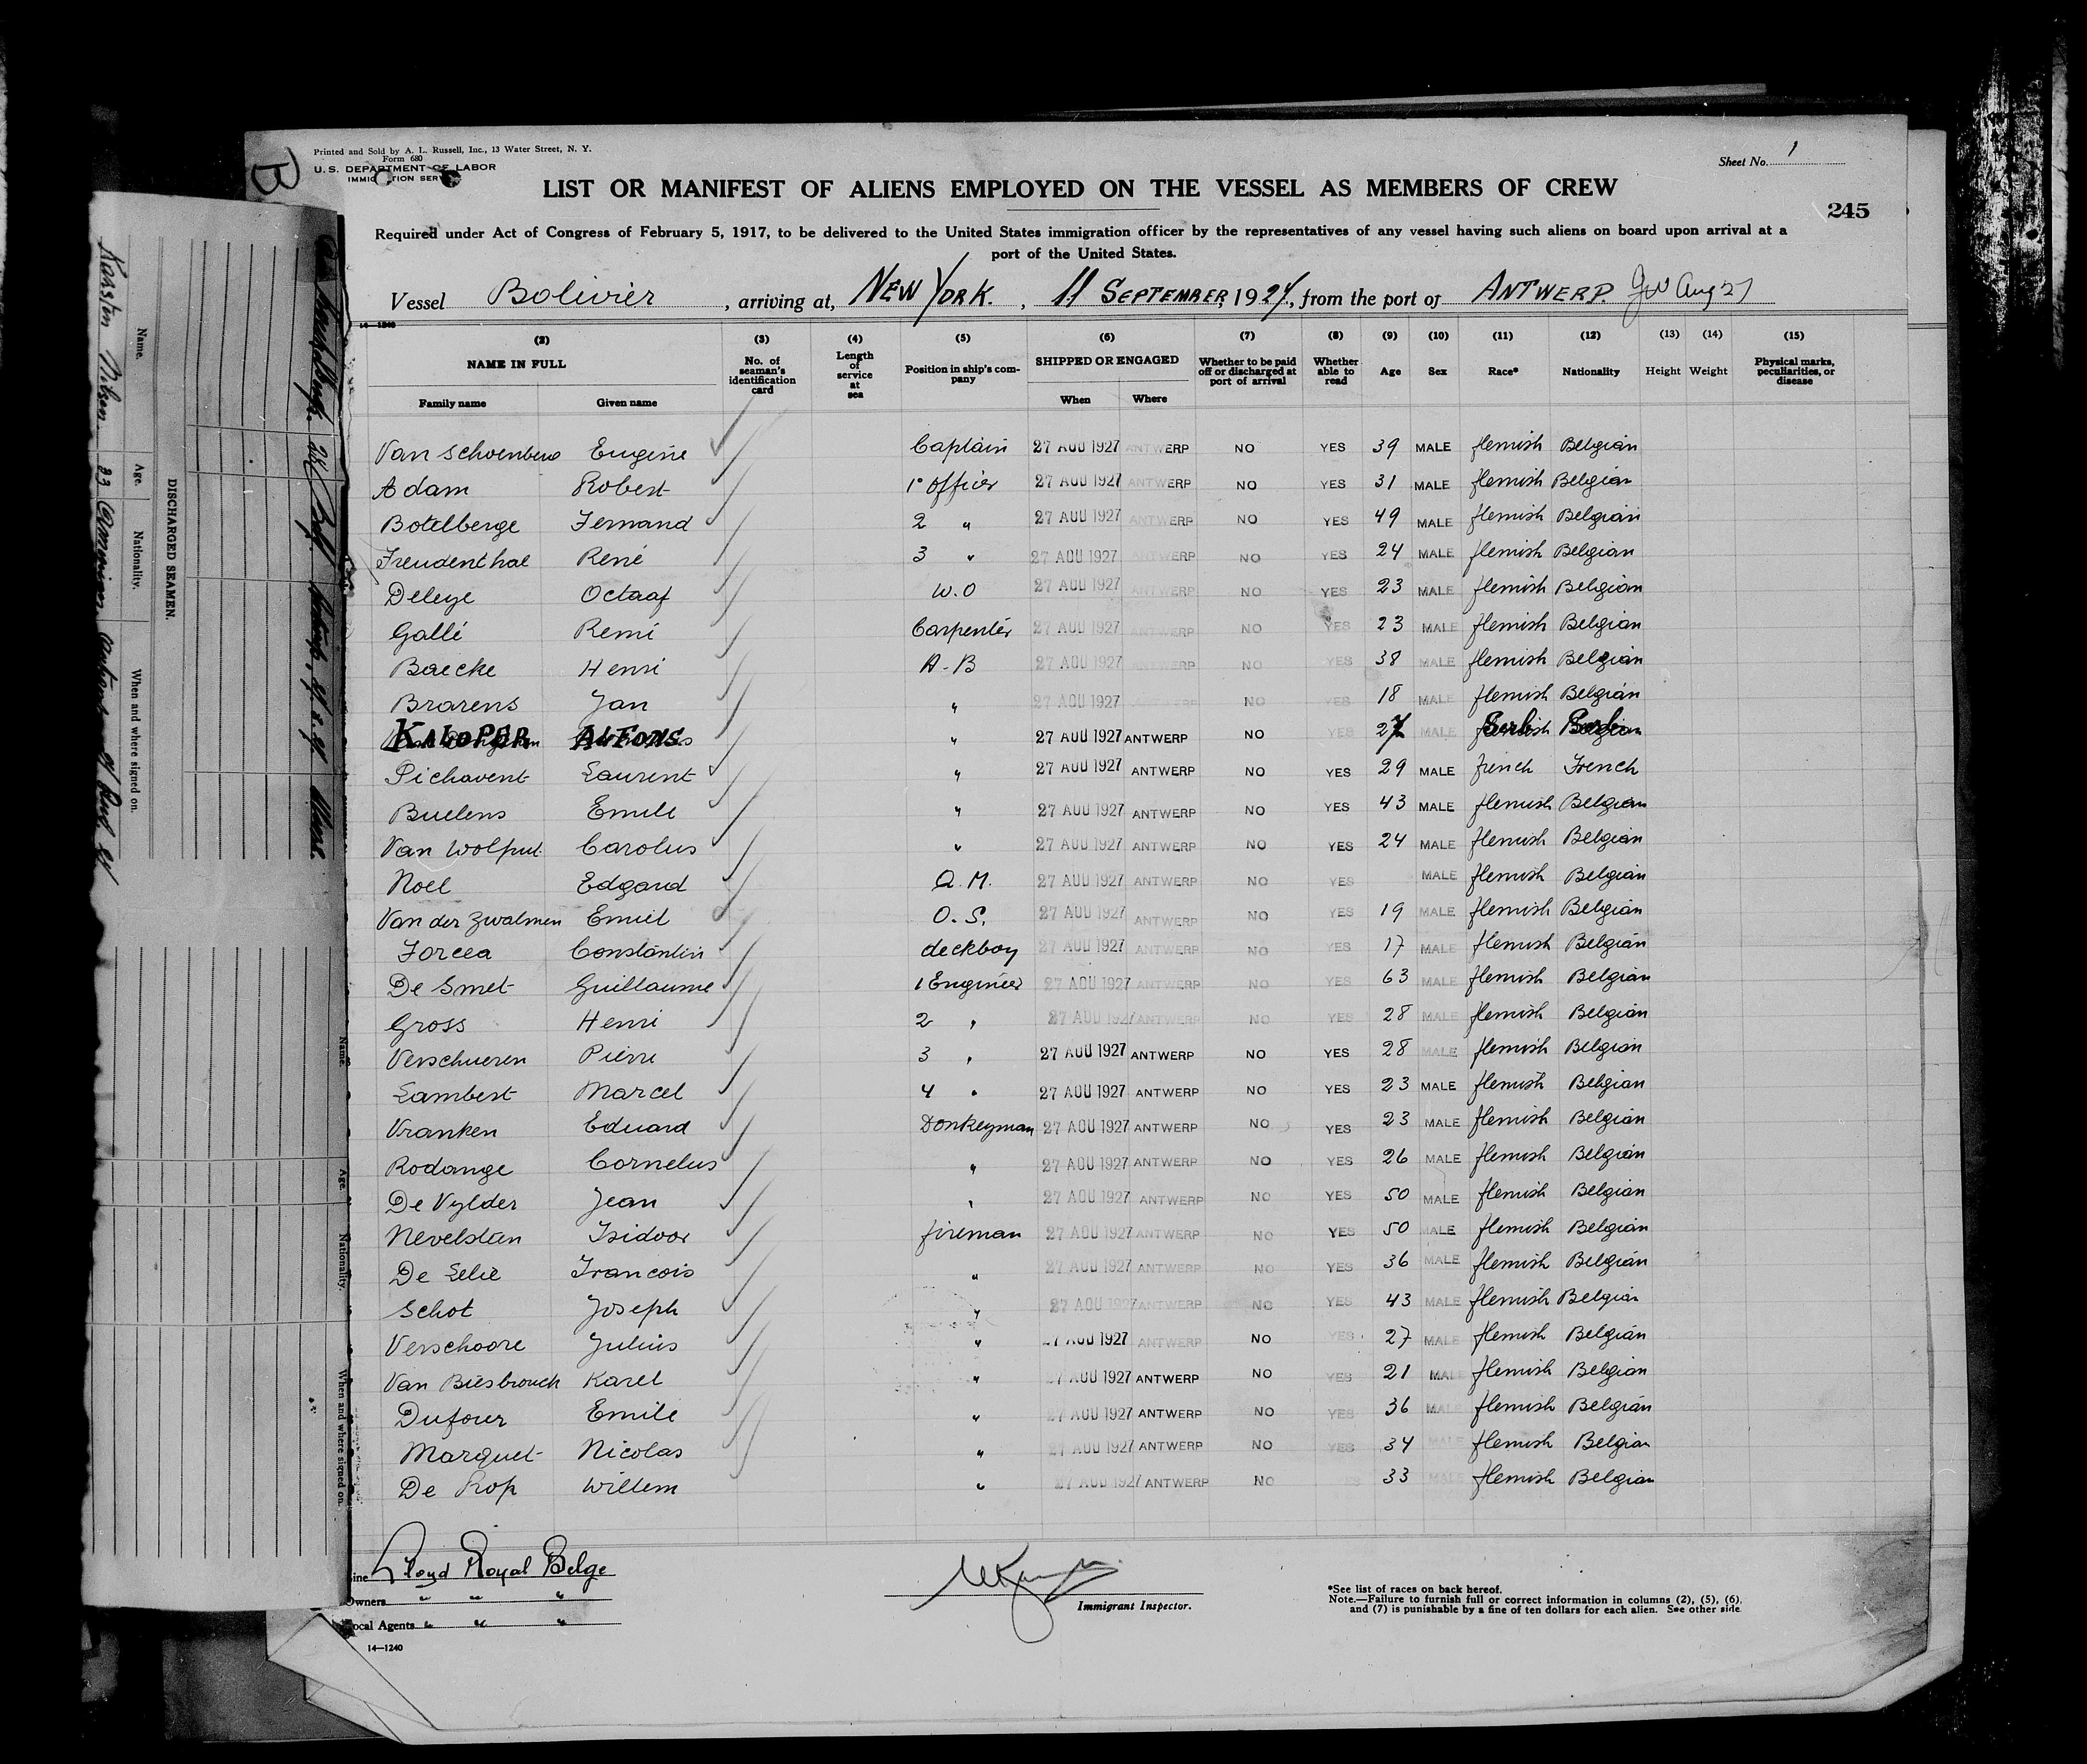 Printed and Sold by A. L. Russell, Inc., 13 Water Street, N. Y.
Form 680
U. S. DEPARTMENT OF LABOR
IMMIGRATION SERVICE
Sheet No. 1
LIST OR MANIFEST OF ALIENS EMPLOYED ON THE VESSEL AS MEMBERS OF CREW
245
Required under Act of Congress of February 5, 1917, to be delivered to the United States immigration officer by the representatives of any vessel having such aliens on board upon arrival at a
port of the United States.
Vessel Bolivier, arriving at, NEW YORK., 11 SEPTEMBER, 1927., from the port of ANTWERP.
14—1240
(2) (3) (4) (5) (6) (7) (8) (9) (10) (11) (12) (13) (14) (15)
NAME IN FULL No. of seaman's identification card Length of service at sea Position in ship's company SHIPPED OR ENGAGED Whether to be paid off or discharged at port of arrival Whether able to read Age Sex Race* Nationality Height Weight Physical marks, peculiarities, or disease
Family name Given name When Where
Van Schoenberg Eugene Captain 27 AOU 1927 ANTWERP NO YES 39 MALE flemish Belgian
Adam Robert 1° officier 27 AOU 1927 ANTWERP NO YES 31 MALE flemish Belgian
Botelberge Fernand 2 " 27 AOU 1927 ANTWERP NO YES 49 MALE flemish Belgian
Freudenthal René 3 " 27 AOU 1927 ANTWERP NO YES 24 MALE flemish Belgian
Deleye Octaaf W.O 27 AOU 1927 ANTWERP NO YES 23 MALE flemish Belgian
Gallé Remi Carpenter 27 AOU 1927 ANTWERP NO YES 23 MALE flemish Belgian
Baecke Henri A-B 27 AOU 1927 ANTWERP NO YES 38 MALE flemish Belgian
Brarens Jan " 27 AOU 1927 ANTWERP NO YES 18 MALE flemish Belgian
KALOPER ALFONS " 27 AOU 1927 ANTWERP NO YES 27 MALE Serb Serb
Pichavent Laurent " 27 AOU 1927 ANTWERP NO YES 29 MALE french French
Buelens Emile " 27 AOU 1927 ANTWERP NO YES 43 MALE flemish Belgian
Van Wolput Carolus " 27 AOU 1927 ANTWERP NO YES 24 MALE flemish Belgian
Noel Edgard Q.M. 27 AOU 1927 ANTWERP NO YES MALE flemish Belgian
Van der Zwalmen Emiel O.S. 27 AOU 1927 ANTWERP NO YES 19 MALE flemish Belgian
Forcea Constantin deckboy 27 AOU 1927 ANTWERP NO YES 17 MALE flemish Belgian
De Smet Guillaume 1 Engineer 27 AOU 1927 ANTWERP NO YES 63 MALE flemish Belgian
Gross Henri 2 " 27 AOU 1927 ANTWERP NO YES 28 MALE flemish Belgian
Verschueren Pierre 3 " 27 AOU 1927 ANTWERP NO YES 28 MALE flemish Belgian
Lambert Marcel 4 " 27 AOU 1927 ANTWERP NO YES 23 MALE flemish Belgian
Vranken Eduard Donkeyman 27 AOU 1927 ANTWERP NO YES 23 MALE flemish Belgian
Rodange Cornelus " 27 AOU 1927 ANTWERP NO YES 26 MALE flemish Belgian
De Vylder Jean " 27 AOU 1927 ANTWERP NO YES 50 MALE flemish Belgian
Nevelstan Isidoor fireman 27 AOU 1927 ANTWERP NO YES 50 MALE flemish Belgian
De Lelie Francois " 27 AOU 1927 ANTWERP NO YES 36 MALE flemish Belgian
Schot Joseph " 27 AOU 1927 ANTWERP NO YES 43 MALE flemish Belgian
Verschoore Julius " 27 AOU 1927 ANTWERP NO YES 27 MALE flemish Belgian
Van Biesbrouck Karel " 27 AOU 1927 ANTWERP NO YES 21 MALE flemish Belgian
Dufour Emile " 27 AOU 1927 ANTWERP NO YES 36 MALE flemish Belgian
Marquet Nicolas " 27 AOU 1927 ANTWERP NO YES 34 MALE flemish Belgian
De Rop Willem " 27 AOU 1927 ANTWERP NO YES 33 MALE flemish Belgian
Line Lloyd Royal Belge
Owners " " "
Local Agents " " "
14—1240
Immigrant Inspector.
*See list of races on back hereof.
Note.—Failure to furnish full or correct information in columns (2), (5), (6),
and (7) is punishable by a fine of ten dollars for each alien. See other side.
DISCHARGED SEAMEN.
Name. Age. Nationality. When and where signed on.
Name. Age. Nationality. When and where signed on.